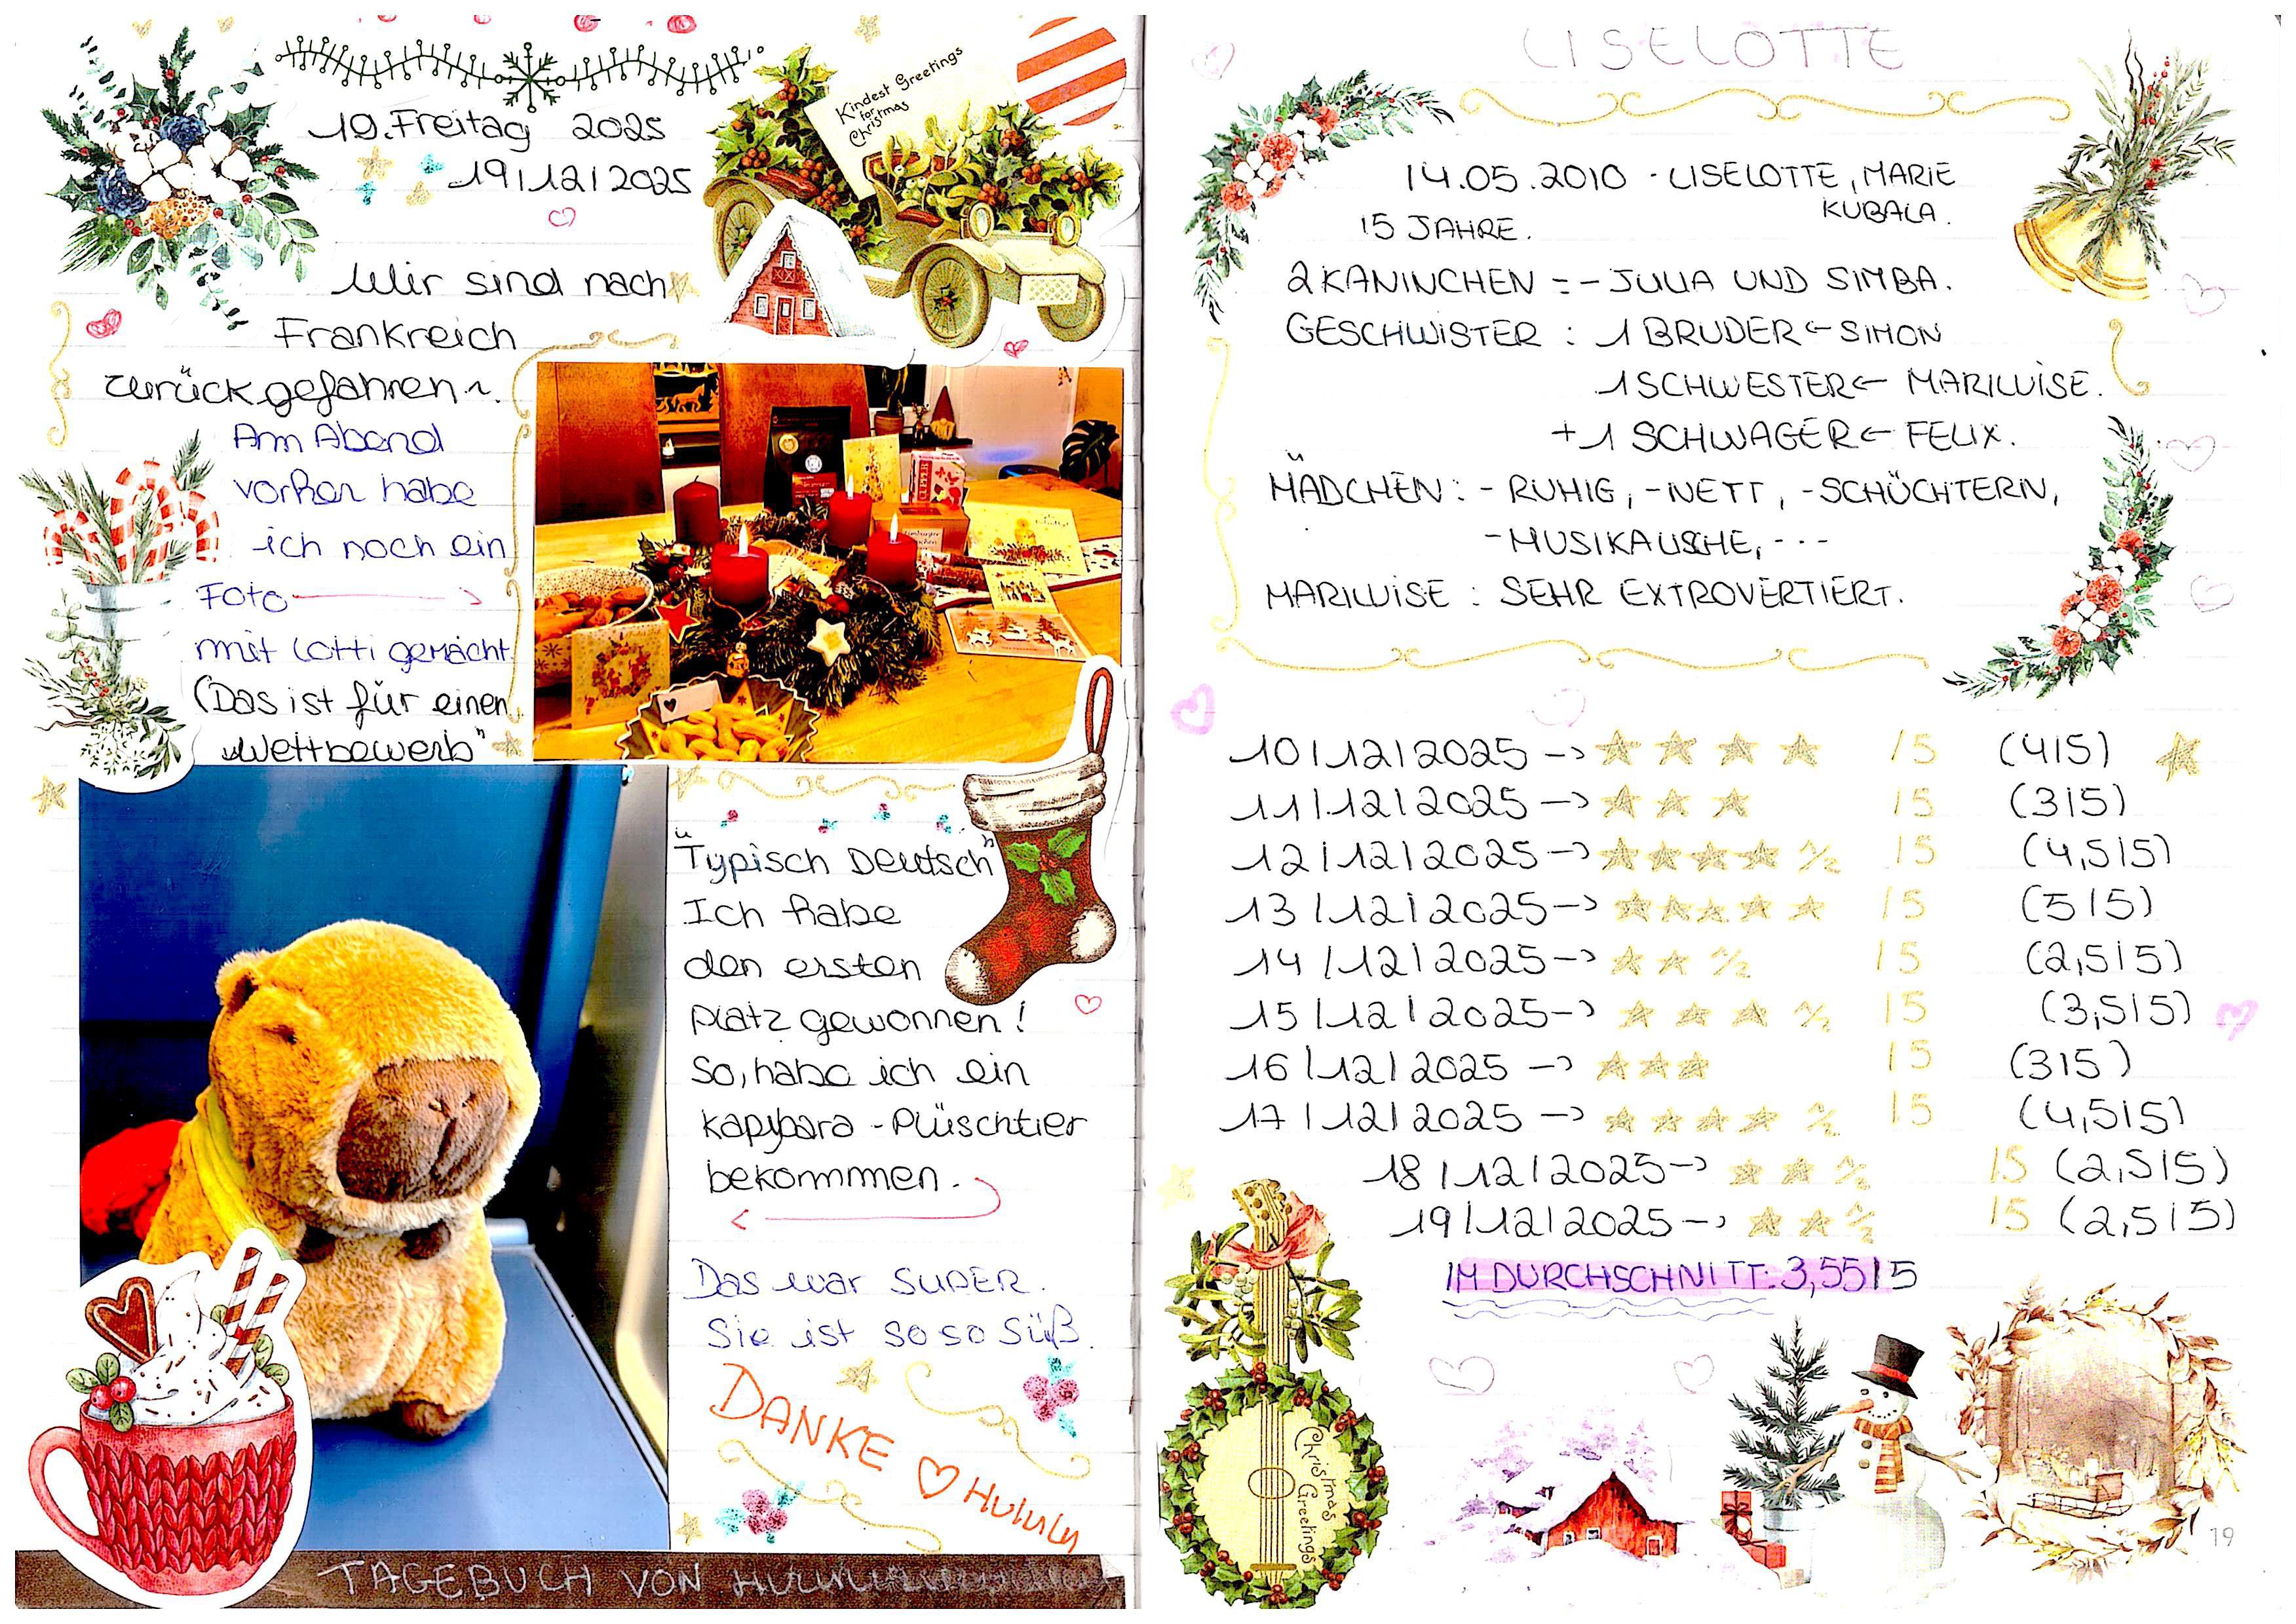 19.Freitag 2025
19/12/2025
Kindest Greetings
for
Christmas
Wir sind nach
Frankreich
zurückgefahren.
Am Abend
vorher habe
ich noch ein
Foto
mit Lotti gemacht
(Das ist für einen
„Wettbewerb"
"Typisch Deutsch"
Ich habe
den ersten
Platz gewonnen!
So, habe ich ein
Kapybara-Plüschtier
bekommmen.
Das war SUPER.
Sie ist so so süß.
DANKE ♡ Hululu
TAGEBUCH VON
LISELOTTE
14.05.2010 - LISELOTTE, MARIE
KUBALA.
15 JAHRE.
2 KANINCHEN = - JULIA UND SIMBA.
GESCHWISTER : 1 BRUDER ← SIMON
1 SCHWESTER ← MARILUISE.
+ 1 SCHWAGER ← FELIX.
MÄDCHEN : - RUHIG, - NETT, - SCHÜCHTERN,
- MUSIKALISCHE, ...
MARILUISE : SEHR EXTROVERTIERT.
10/12/2025 -> ★ ★ ★ ★ /5 (4/5)
11/12/2025 -> ★ ★ ★ /5 (3/5)
12/12/2025 -> ★ ★ ★ ★ ½ /5 (4,5/5)
13/12/2025 -> ★ ★ ★ ★ ★ /5 (5/5)
14/12/2025 -> ★ ★ ½ /5 (2,5/5)
15/12/2025 -> ★ ★ ★ ½ /5 (3,5/5)
16/12/2025 -> ★ ★ ★ /5 (3/5)
17/12/2025 -> ★ ★ ★ ★ ½ /5 (4,5/5)
18/12/2025 -> ★ ★ ½ /5 (2,5/5)
19/12/2025 -> ★ ★ ½ /5 (2,5/5)
IM DURCHSCHNITT: 3,55/5
Christmas
Greetings
19